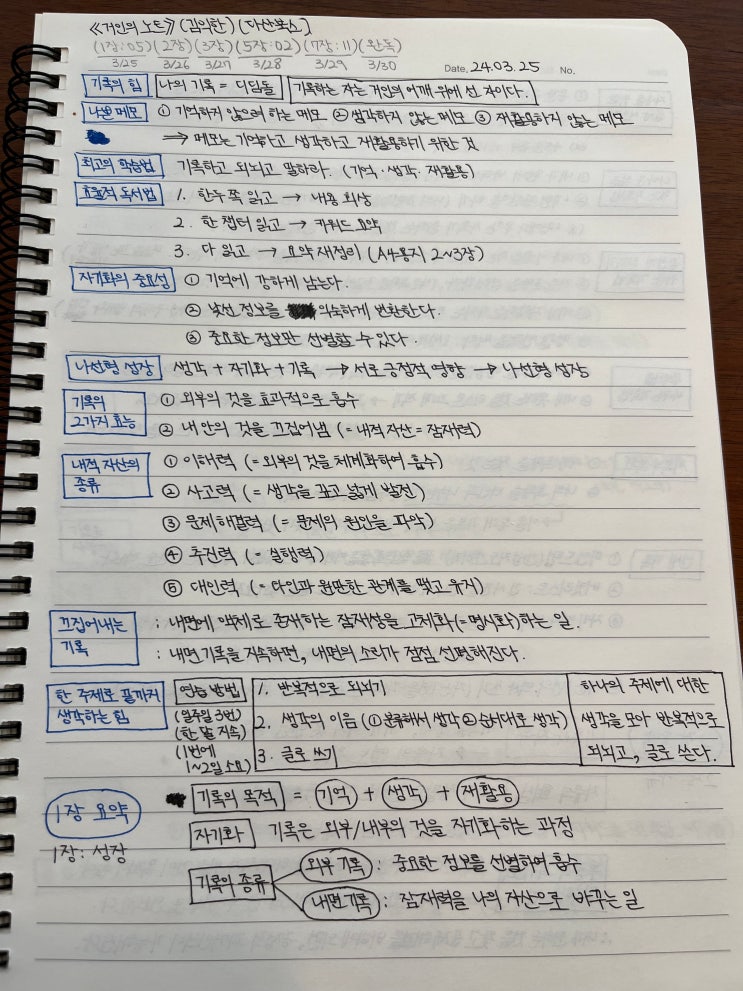 《거인의 노트》 (김익한) [다산북스]
(1장:05) (2장) (3장) (5장:02) (7장:11) (완독)
3/25 3/26 3/27 3/28 3/29 3/30 Date. 24.03.25 No.
기록의 힘 나의 기록 = 디딤돌 기록하는 자는 거인의 어깨 위에 선 자이다.
나쁜 메모 ① 기억하지 않으려 하는 메모 ② 생각하지 않는 메모 ③ 재활용하지 않는 메모
⇒ 메모는 기억하고 생각하고 재활용하기 위한 것
최고의 학습법 기록하고 되뇌고 말하라. (기억·생각·재활용)
효율적 독서법 1. 한두 쪽 읽고 → 내용 회상
2. 한 챕터 읽고 → 키워드 요약
3. 다 읽고 → 요약 재정리 (A4용지 2~3장)
자기화의 중요성 ① 기억에 강하게 남는다.
② 낯선 정보를 익숙하게 변환한다.
③ 중요한 정보만 선별할 수 있다.
나선형 성장 생각 + 자기화 + 기록 → 서로 긍정적 영향 → 나선형 성장
기록의 2가지 효능 ① 외부의 것을 효과적으로 흡수
② 내 안의 것을 끄집어냄 (= 내적 자산 = 잠재력)
내적 자산의 종류 ① 이해력 (= 외부의 것을 체계화하여 흡수)
② 사고력 (= 생각을 깊고 넓게 발전)
③ 문제해결력 (= 문제의 원인을 파악)
④ 추진력 (= 실행력)
⑤ 대인력 (= 타인과 원만한 관계를 맺고 유지)
끄집어내는 기록 : 내면에 액체로 존재하는 잠재성을 고체화(=명시화)하는 일.
: 내면 기록을 지속하면, 내면의 소리가 점점 선명해진다.
한 주제로 끝까지 생각하는 힘 연습 방법 (일주일 3번) (한 달 지속) (1번에 1~2일 소요)
1. 반복적으로 되뇌기
2. 생각의 이음 (① 분류해서 생각 ② 순서대로 생각)
3. 글로 쓰기
하나의 주제에 대한
생각을 모아 반복적으로
되뇌고, 글로 쓴다.
1장 요약 기록의 목적 = 기억 + 생각 + 재활용
1장: 성장 자기화 기록은 외부/내부의 것을 자기화하는 과정
기록의 종류 외부 기록 : 중요한 정보를 선별하여 흡수
내면 기록 : 잠재력을 나의 자산으로 바꾸는 일